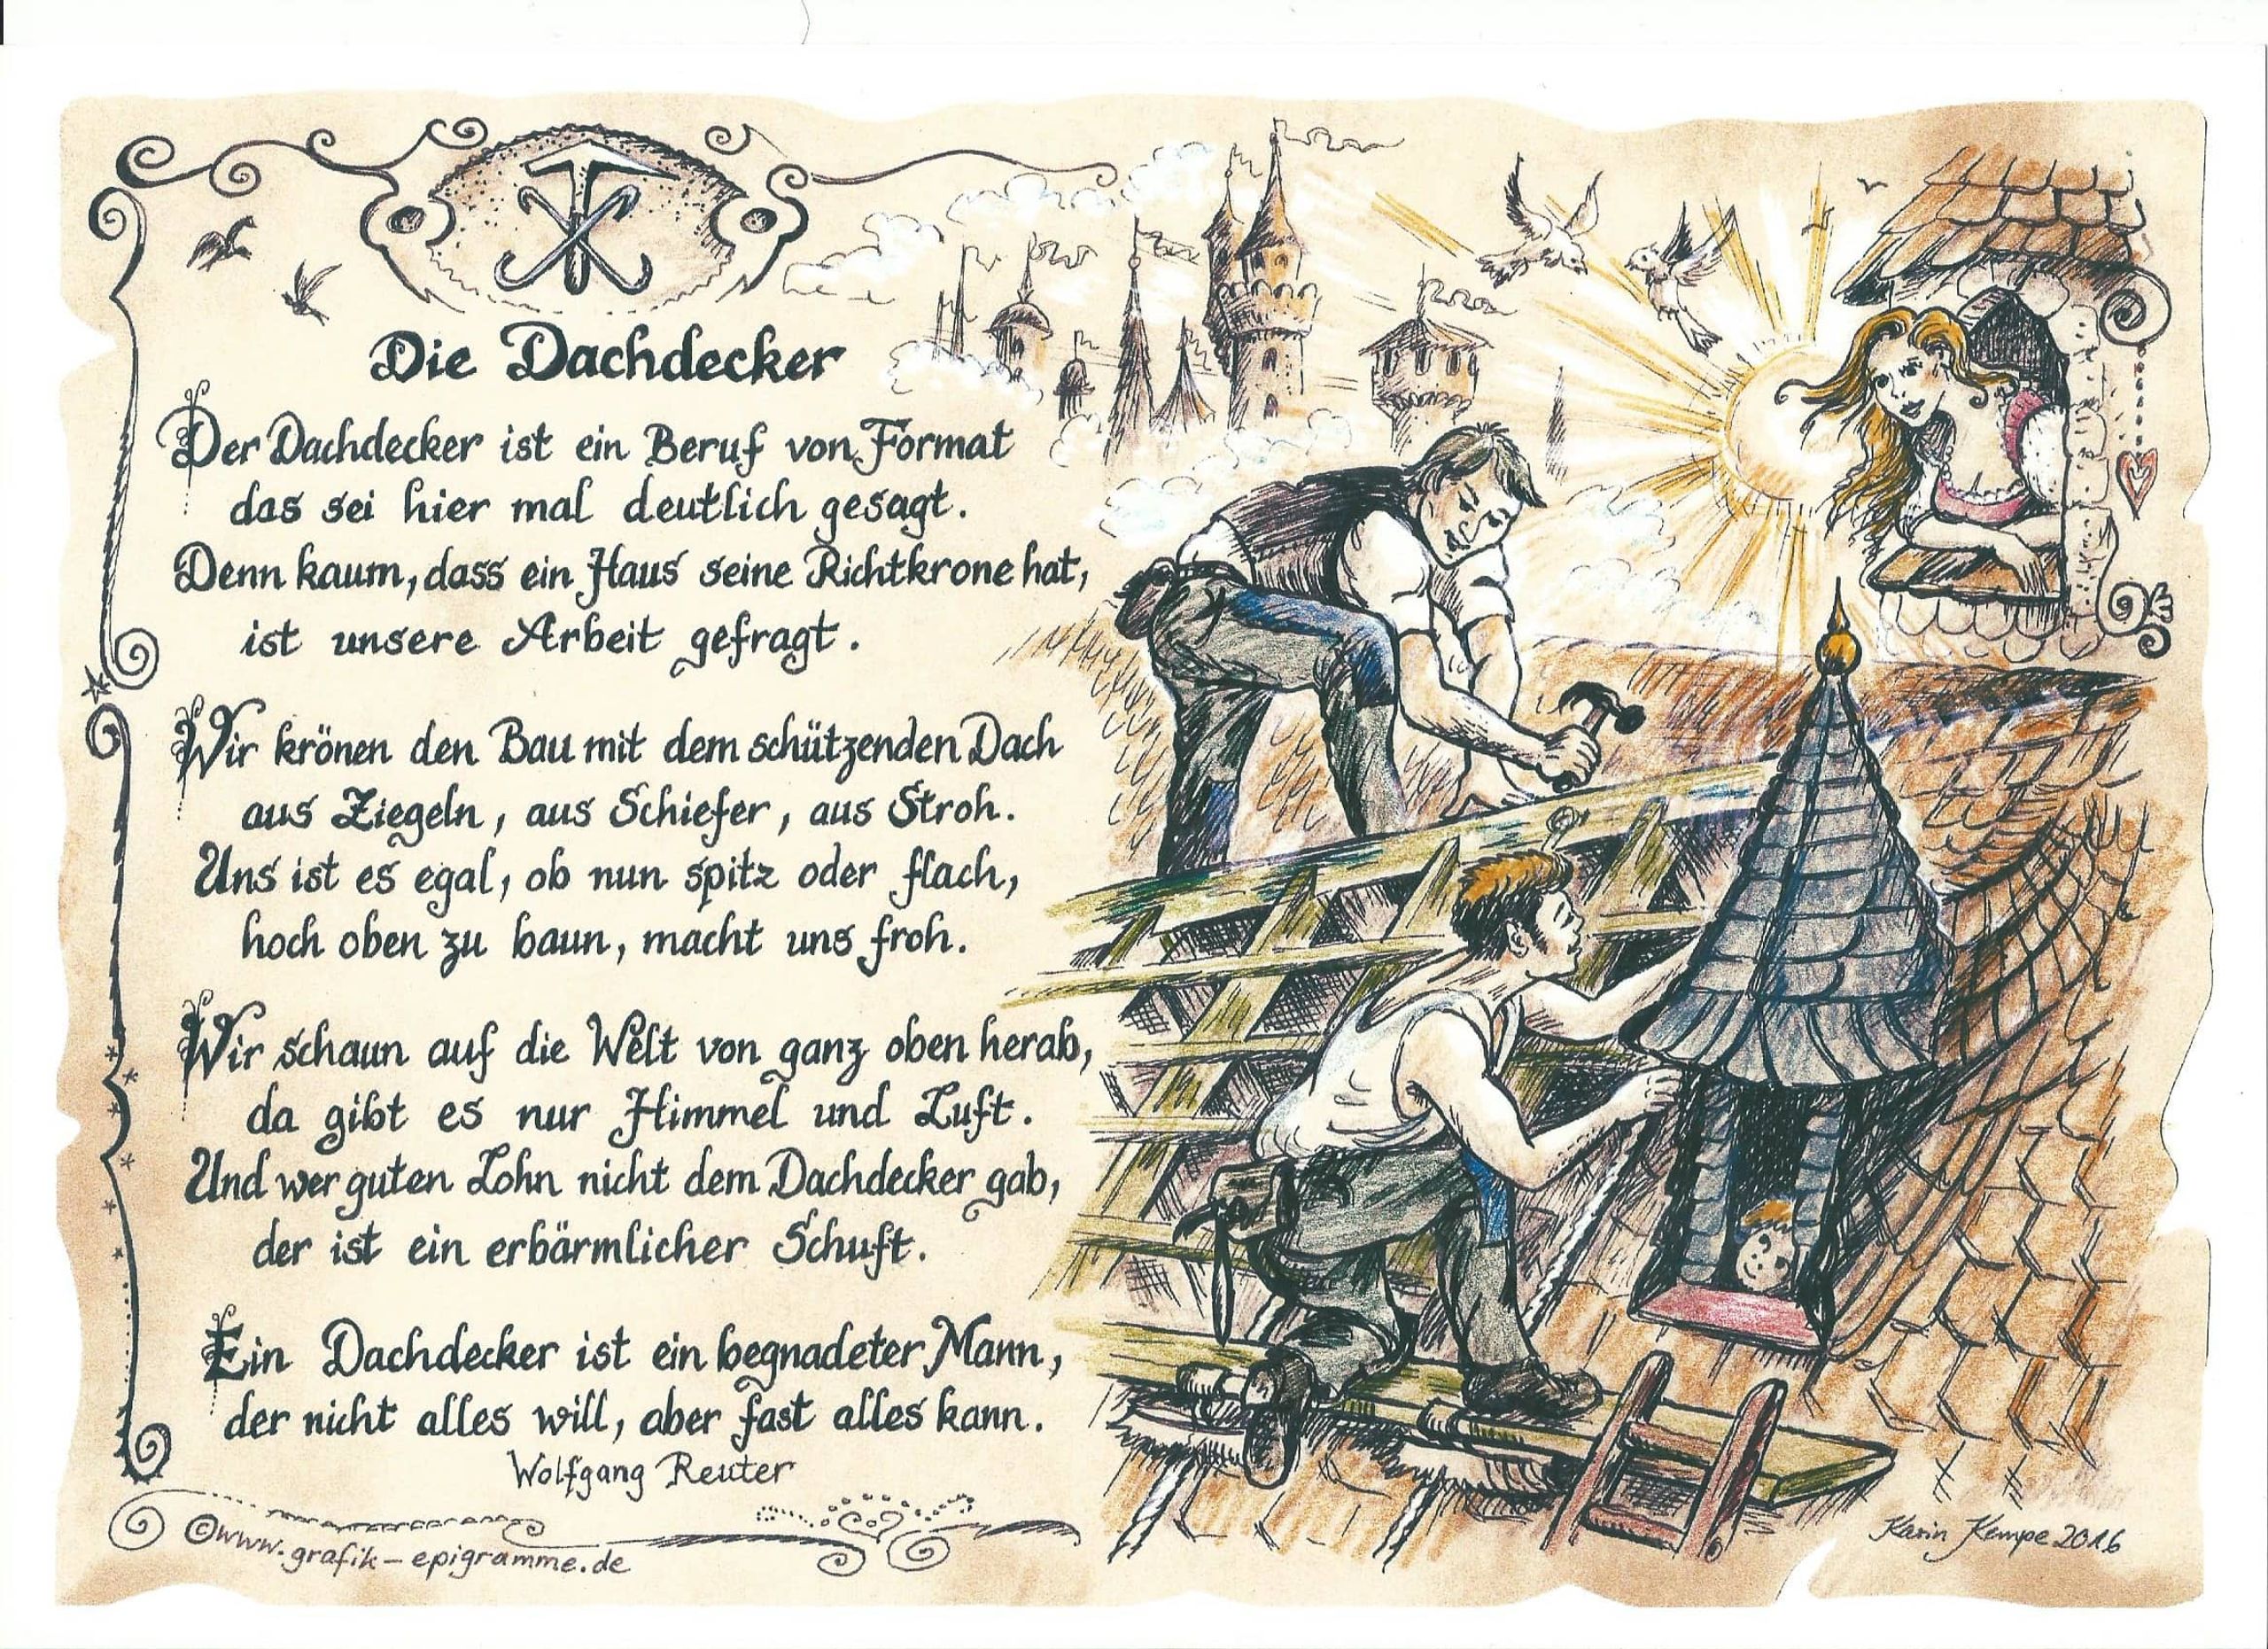 Die Dachdecker
Der Dachdecker ist ein Beruf von Format
das sei hier mal deutlich gesagt.
Denn kaum, dass ein Haus seine Richtkrone hat,
ist unsere Arbeit gefragt.
Wir krönen den Bau mit dem schützenden Dach
aus Ziegeln, aus Schiefer, aus Stroh.
Uns ist es egal, ob nun spitz oder flach,
hoch oben zu baun, macht uns froh.
Wir schaun auf die Welt von ganz oben herab,
da gibt es nur Himmel und Luft.
Und wer guten Lohn nicht dem Dachdecker gab,
der ist ein erbärmlicher Schuft.
Ein Dachdecker ist ein begnadeter Mann,
der nicht alles will, aber fast alles kann.
Wolfgang Reuter
©www.grafik-epigramme.de
Karin Kempe 2016